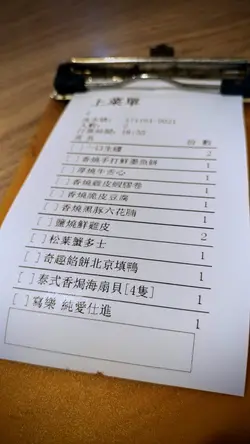 上菜單
171191-0021
人數:
打票時間: 18:55
份 數
[ ]一口生蠔 2
[ ]香燒手打鮮墨魚餅 1
[ ]厚燒牛舌心 1
[ ]香燒雞皮蝦膠卷 1
[ ]香燒脆皮豆腐 1
[ ]香燒黑豚六花腩 1
[ ]鹽燒鮮雞皮 2
[ ]松葉蟹多士 1
[ ]奇趣餡餅北京填鴨 1
[ ]泰式香焗海扇貝[4隻] 1
[ ]寫樂 純愛仕進 1